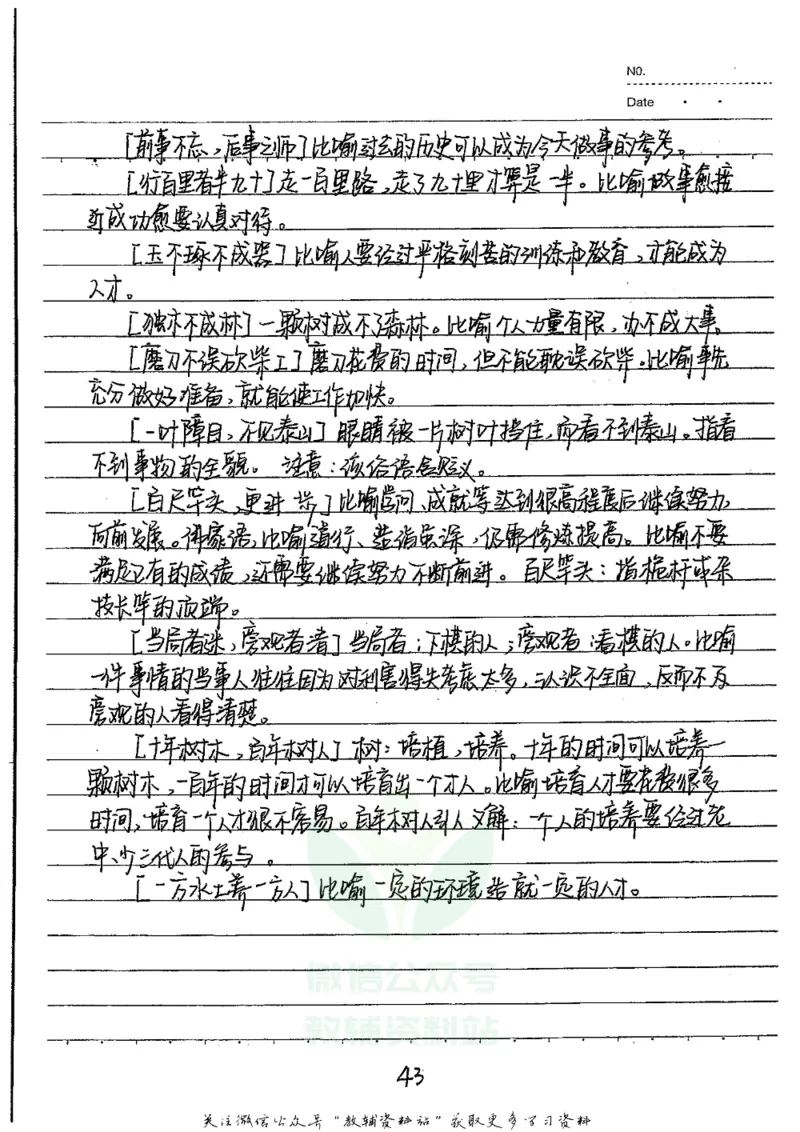 N0.
Date
[前事不忘,后事之师]比喻过去的历史可以成为今天做事的参考。
[行百里者半九十]走一百里路,走了九十里才算是一半。比喻做事愈接
近成功愈要认真对待。
[玉不琢不成器]比喻人要经过严格刻苦的训练和教育,才能成为
人才。
[独木不成林]一颗树成不了森林。比喻个人力量有限,办不成大事。
[磨刀不误砍柴工]磨刀花费的时间,但不能耽误砍柴。比喻事先
充分做好准备,就能使工作加快。
[一叶障目,不见泰山]眼睛被一片树叶挡住,而看不到泰山。指看
不到事物的全貌。 注意:该俗语含贬义。
[百尺竿头,更进一步]比喻学问、成就等达到很高程度后继续努力,
向前发展。佛家语,比喻道行、造诣虽深,仍需修炼提高。比喻不要
满足已有的成绩,还需要继续努力不断前进。百尺竿头:指桅杆或杂
技长竿的顶端。
[当局者迷,旁观者清]当局者:下棋的人;旁观者:看棋的人。比喻
一件事情的当事人往往因为对利害得失考虑太多,认识不全面,反而不及
旁观的人看得清楚。
[十年树木,百年树人]树:培植,培养。十年的时间可以培养一
颗树木,一百年的时间才可以培育出一个才人。比喻培育人才要花费很多
时间,培育一个人才很不容易。百年树人引人义解:一个人的培养要经过老
中、少三代人的参与。
[一方水土养一方人]比喻一定的环境造就一定的人才。
微信公众号
教辅资料站
43
关注微信公众号"教辅资料站"获取更多学习资料